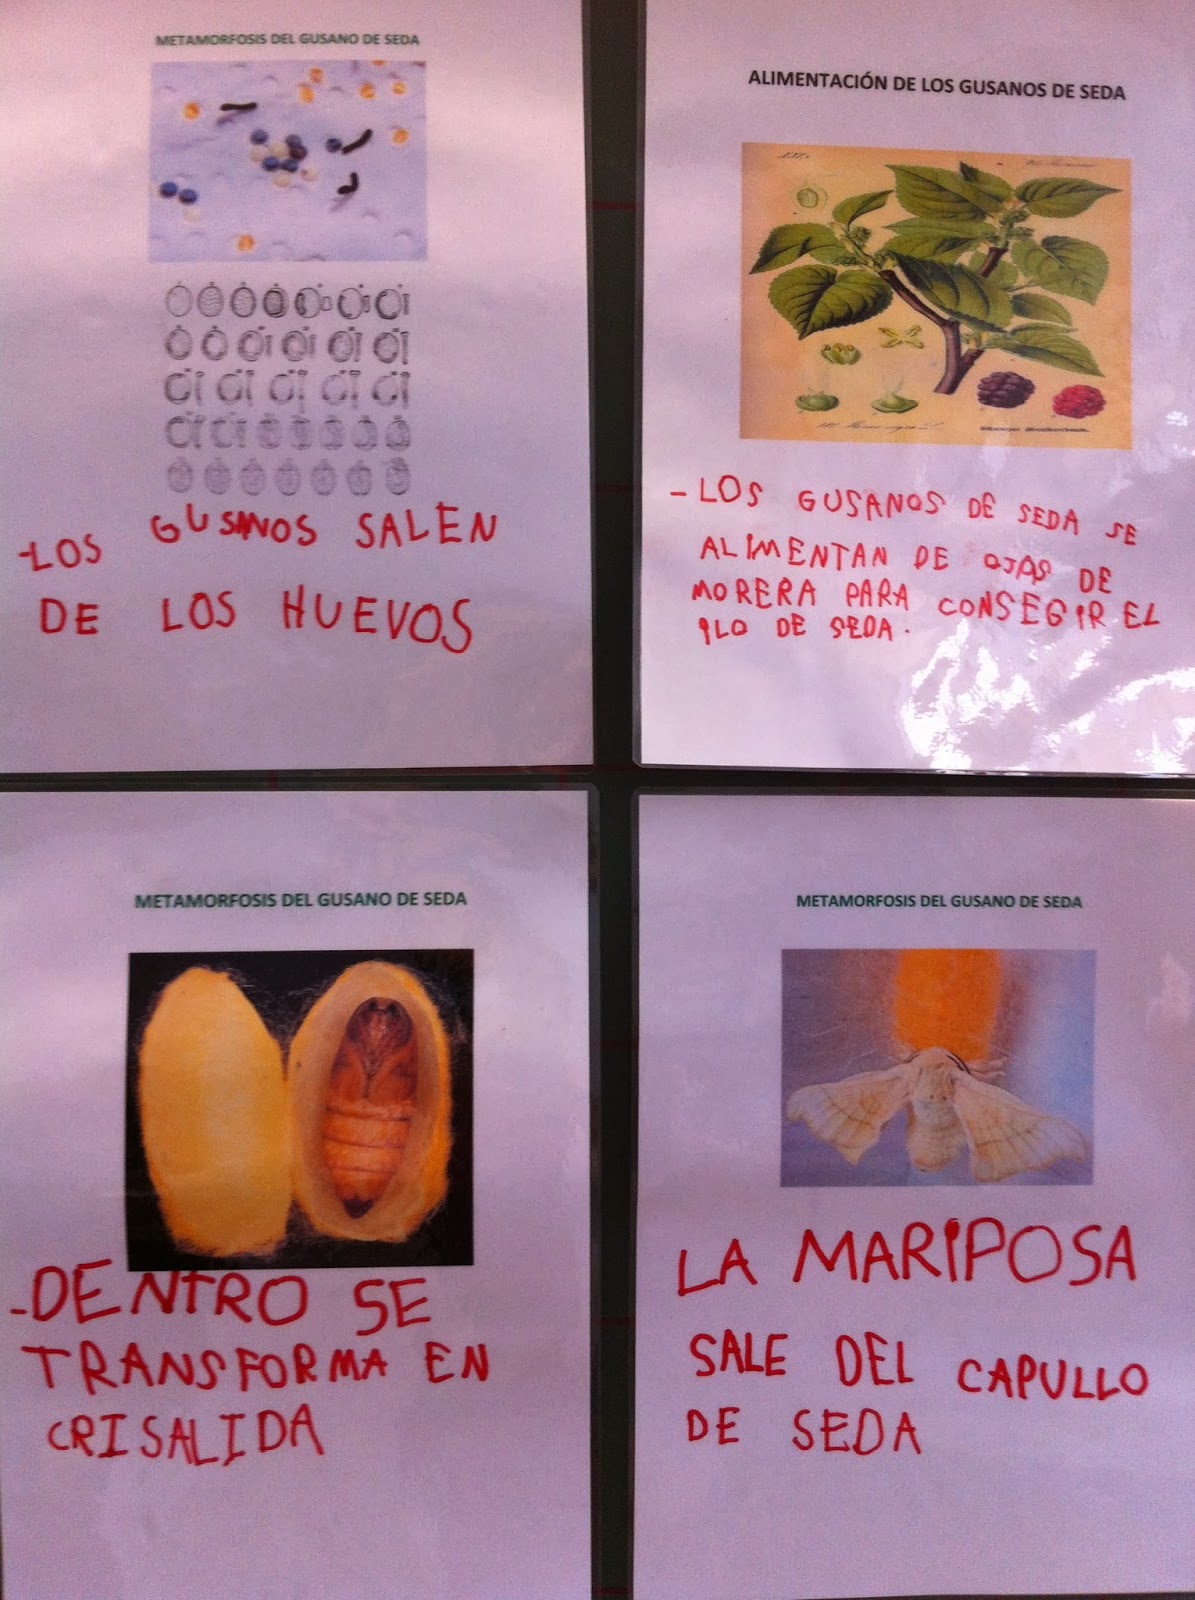 METAMORFOSIS DEL GUSANO DE SEDA
-LOS GUSANOS SALEN
DE LOS HUEVOS
ALIMENTACIÓN DE LOS GUSANOS DE SEDA
- LOS GUSANOS DE SEDA SE
ALIMENTAN DE OJAS DE
MORERA PARA CONSEGIR EL
ILO DE SEDA.
METAMORFOSIS DEL GUSANO DE SEDA
-DENTRO SE
TRANSFORMA EN
CRISALIDA
METAMORFOSIS DEL GUSANO DE SEDA
LA MARIPOSA
SALE DEL CAPULLO
DE SEDA